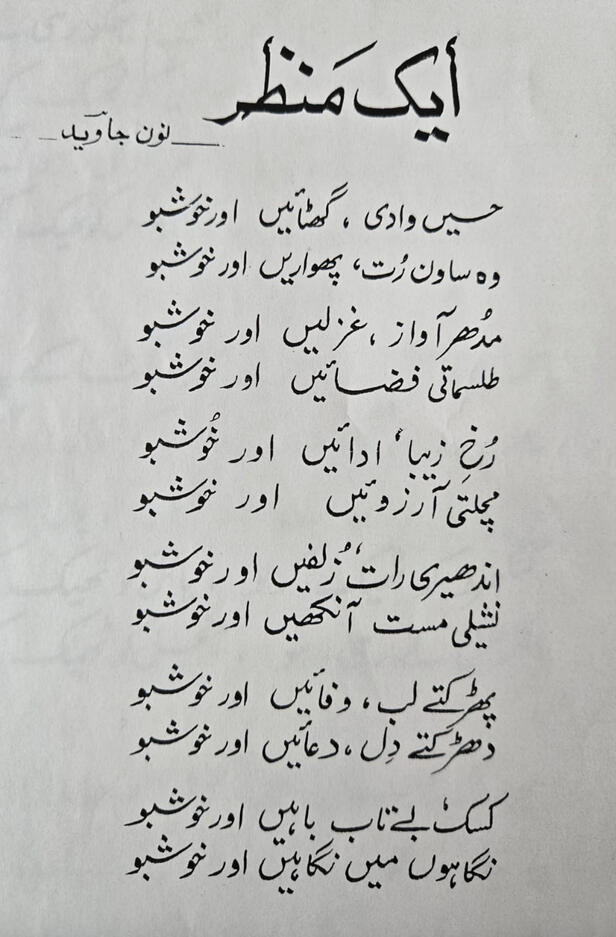 ایک مَنظر
نون جاوید
حسیں وادی ، گھٹائیں اور خوشبو
وہ ساون رُت، پھواریں اور خوشبو
مدُھر آواز ، غزلیں اور خوشبو
طلسماتی فضائیں اور خوشبو
رُخِ زیبا، ادائیں اور خُوشبو
مچلتی آرزوئیں اور خوشبو
اندھیری رات، زُلفیں اور خوشبو
نشیلی مست آنکھیں اور خوشبو
پھڑکتے لب، وفائیں اور خوشبو
دھڑکتے دِل ، دعائیں اور خوشبو
کسک، بے تاب باہیں اور خوشبو
نگاہوں میں نگاہیں اور خوشبو